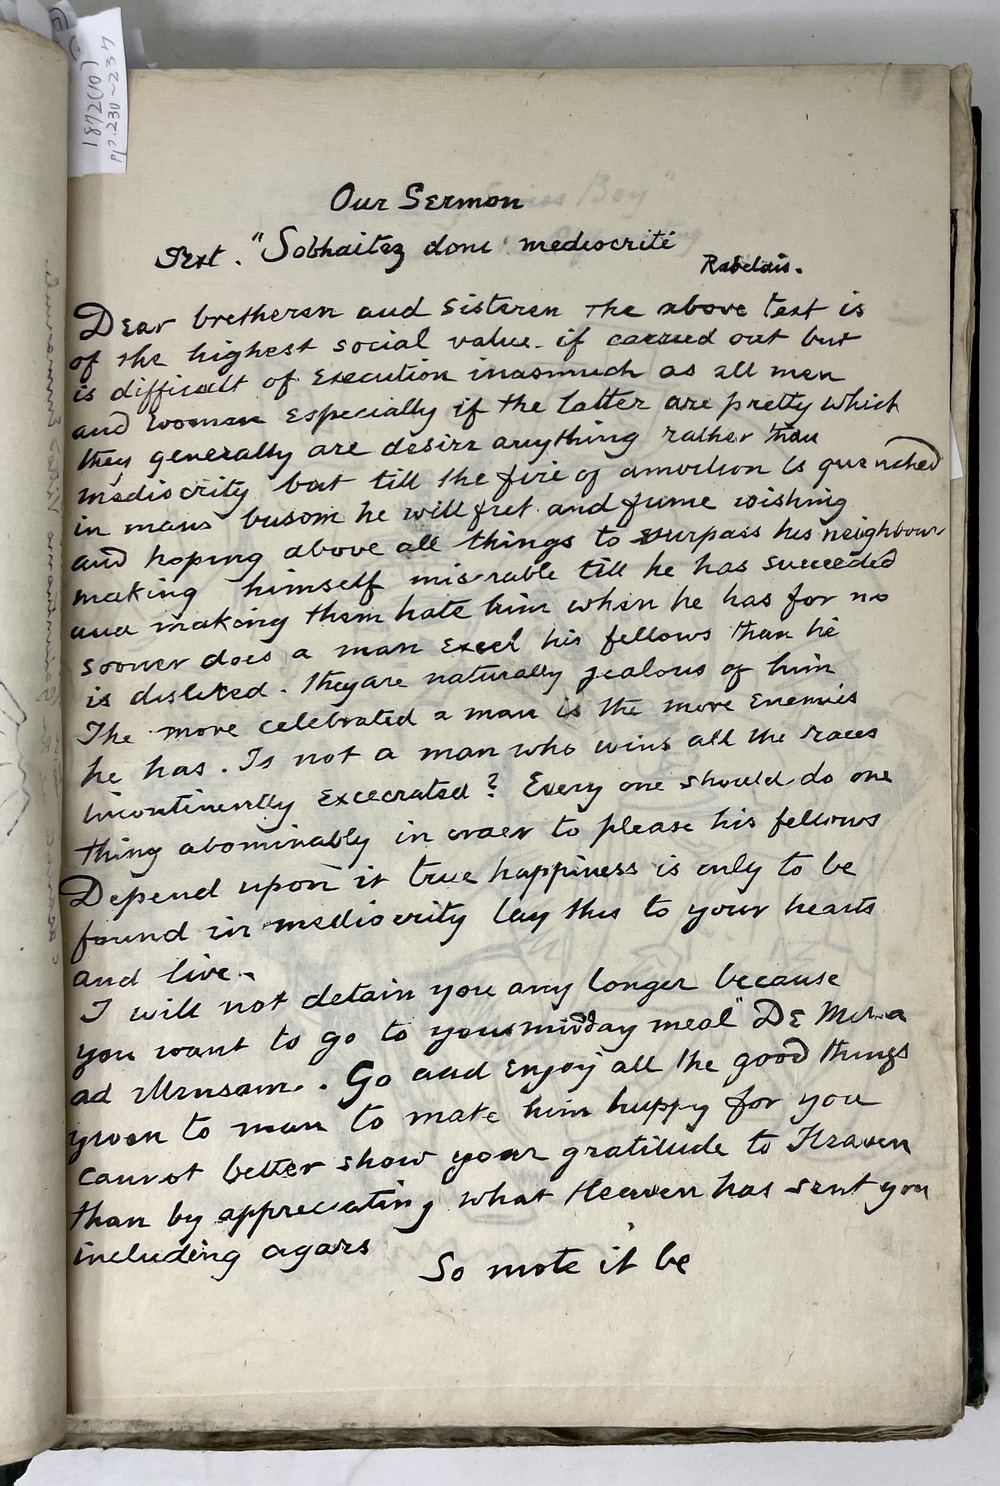 1872(10)
pp. 230~237
Our Sermon
Text. "Sobhaitez donc mediocrité
Rabelais.
Dear bretheren and sisteren the above text is
of the highest social value. if carried out but
is difficult of Execution inasmuch as all men
and women especially if the latter are pretty which
they generally are desire anything rather than
mediocrity but till the fire of amortion is quenched
in mans busom he will fret and fume wishing
and hoping above all things to surpass his neighbour
making himself miserable till he has succeeded
and making them hate him when he has for no
sooner does a man Excel his fellows than he
is disliked. they are naturally jealous of him
The more celebrated a man is the more Enemies
he has. Is not a man who wins all the races
incontinently Excecrated? Every one should do one
thing abominably in order to please his fellows
Depend upon it true happiness is only to be
found in mediocrity lay this to your hearts
and live.
I will not detain you any longer because
you want to go to your midday meal "De Missa
ad Mensam. Go and Enjoy all the good things
given to man to make him happy for you
cannot better show your gratitude to Heaven
than by appreciating what Heaven has sent you
including cigars
So mote it be